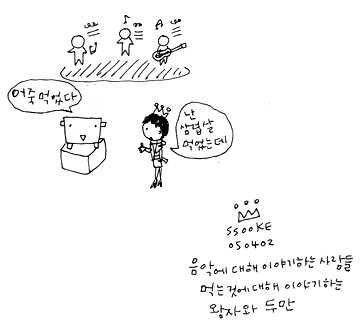 어죽 먹었다
난
삼겹살
먹었는데
SSOOKE
050402
음악에 대해 이야기하는 사람들
먹는것에 대해 이야기하는
왕자와 두만